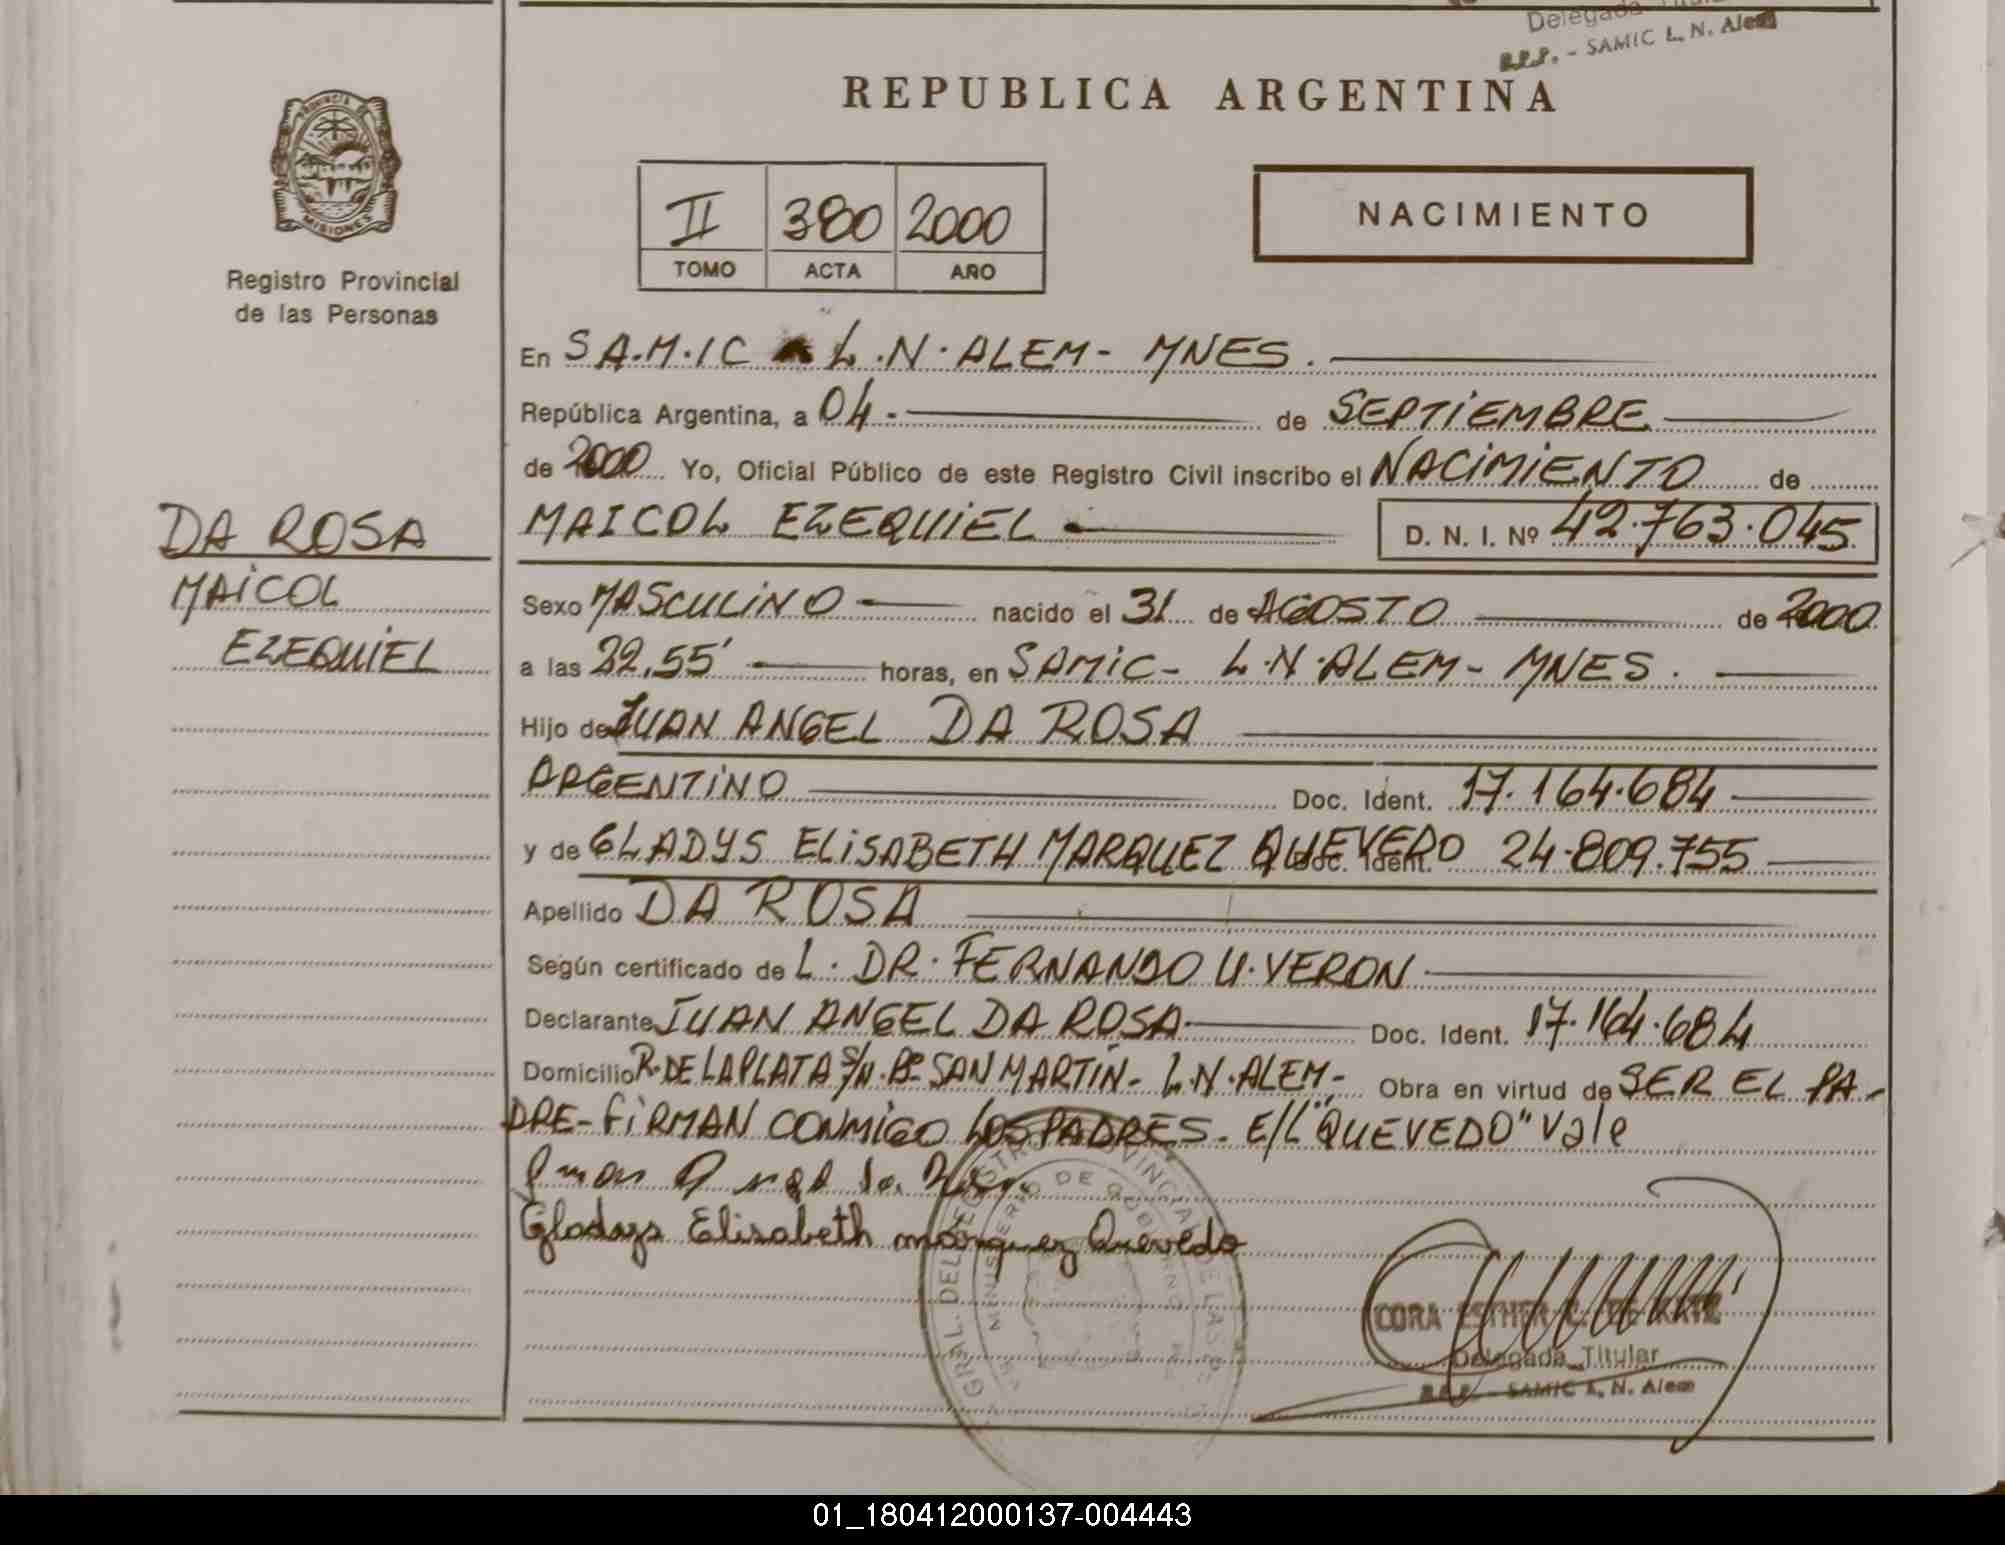 Delegada Titular
R.P.P. - SAMIC L. N. Alem
REPUBLICA ARGENTINA
PROVINCIA DE
MISIONES
Registro Provincial
de las Personas
II 380 2000
TOMO ACTA AÑO
NACIMIENTO
En SA.M.IC L.N.ALEM- MNES.
República Argentina, a 04.- de SEPTIEMBRE
de 2000 Yo, Oficial Público de este Registro Civil inscribo el NACIMIENTO de
MAICOL EZEQUIEL D. N. I. Nº 42.763.045
DA ROSA
MAICOL
EZEQUIEL
Sexo MASCULINO nacido el 31 de AGOSTO de 2000
a las 22,55' horas, en SAMIC- L.N.ALEM- MNES.
Hijo de JUAN ANGEL DA ROSA
ARGENTINO Doc. Ident. 17.164.684
y de GLADYS ELISABETH MARQUEZ QUEVEDO Doc. Ident. 24.809.755
Apellido DA ROSA
Según certificado de L. DR. FERNANDO U. VERON
Declarante JUAN ANGEL DA ROSA Doc. Ident. 17.164.684
Domicilio R. DE LA PLATA S/N. Bº SAN MARTIN- L.N.ALEM- Obra en virtud de SER EL PA-
DRE- FIRMAN CONMIGO LOS PADRES. E/L "QUEVEDO" Vale
Gladys Elisabeth márquez Quevedo
MINISTERIO DE GOBIERNO
CORA ESTHER
Delegada Titular
R.P.P. - SAMIC L. N. Alem
01_180412000137-004443